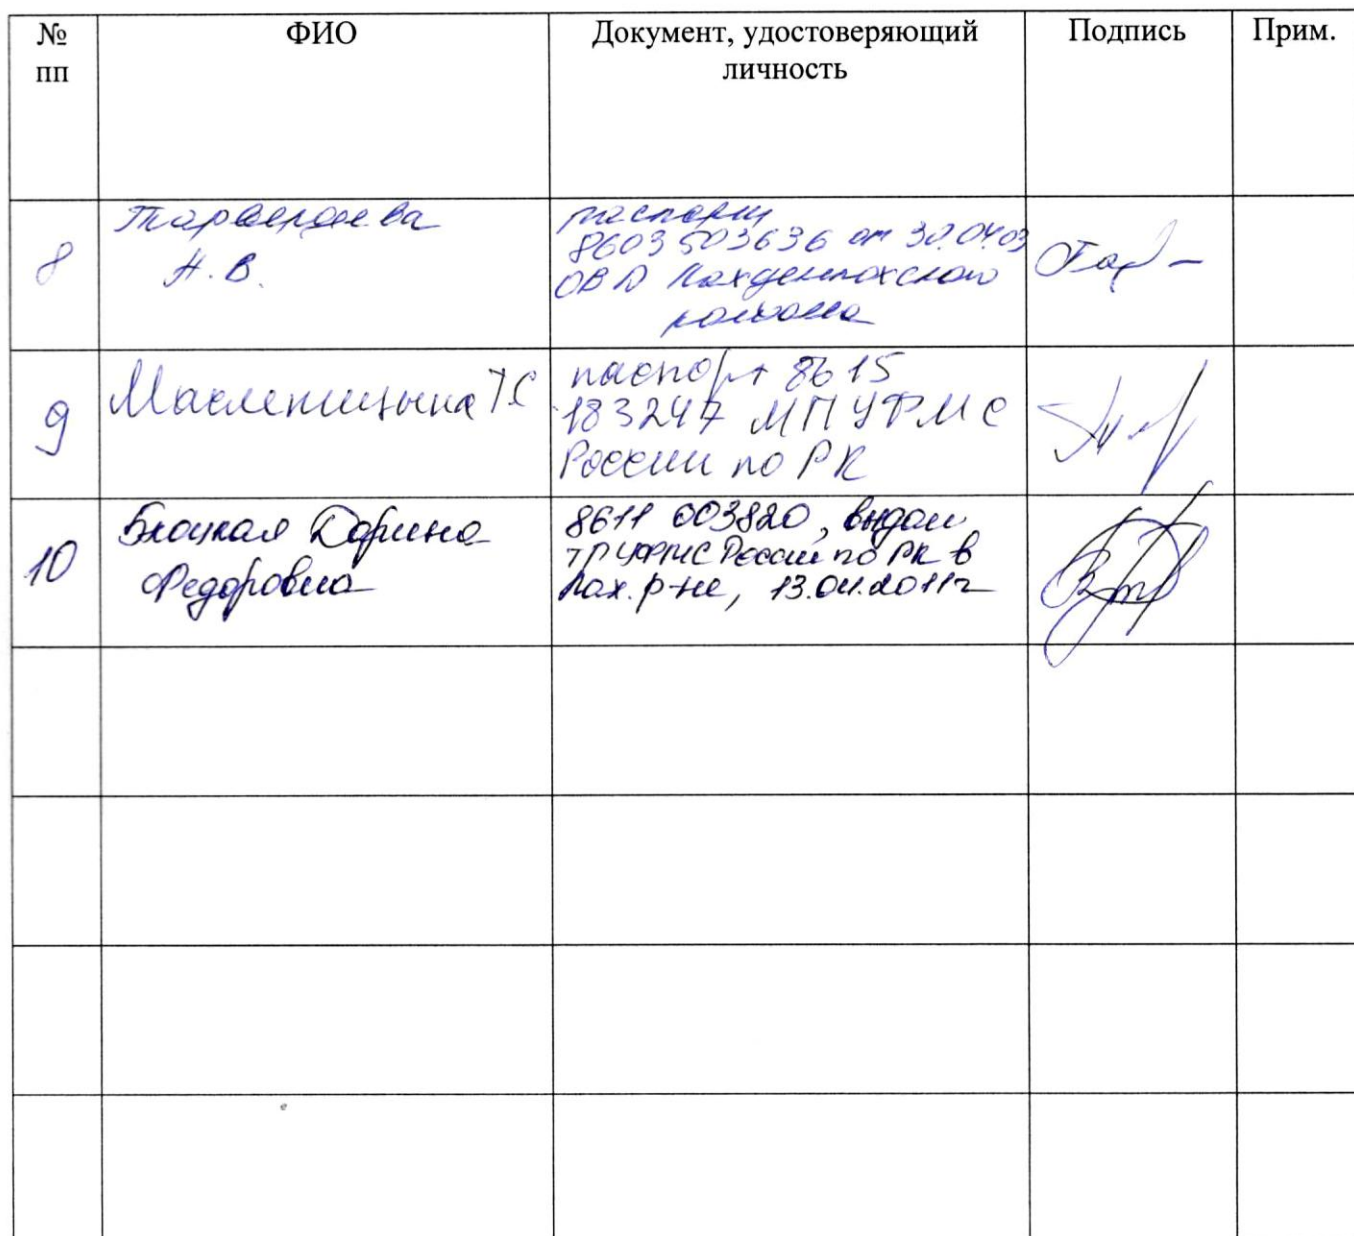 № пп
ФИО
Документ, удостоверяющий
личность
Подпись
Прим.
8
Тарвердиева
Н.В.
паспорт
8603 503636 от 30.04.03
ОВД Лахденпохского
района
9
Маслепицына ТС
паспорт 8615
183247 МП УФМС
России по РК
10
Дарина
Федоровна
8611 003820, выдан
ТП УФМС России по РК в
Лах. р-не, 13.04.2011г